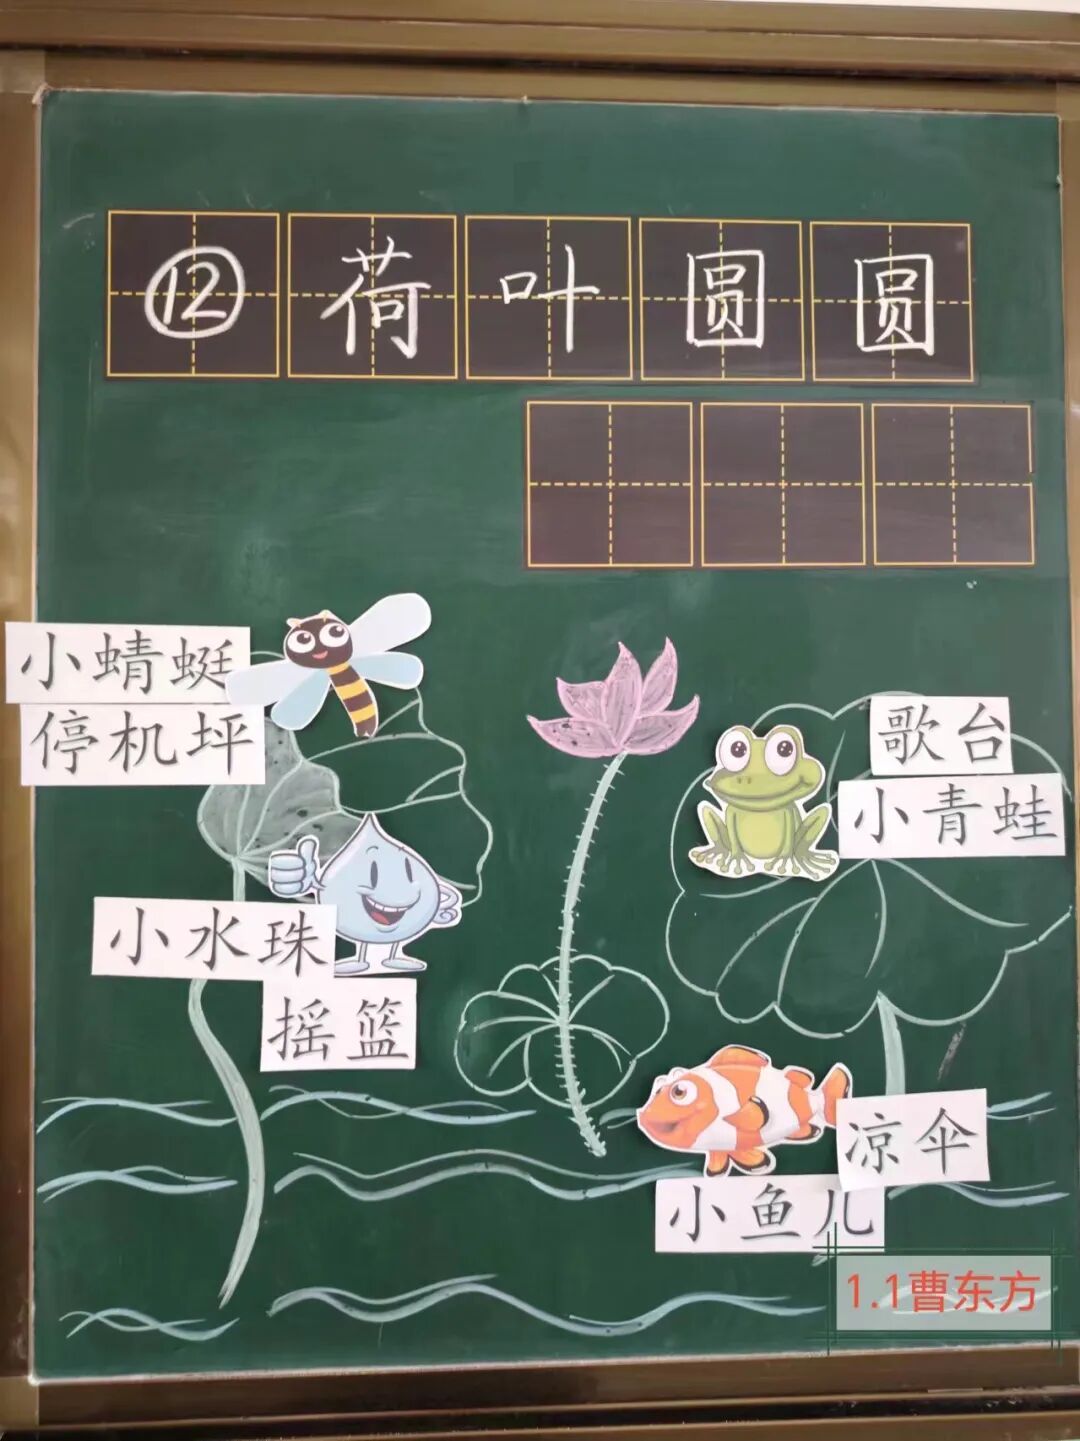 ⑫荷叶圆圆
小蜻蜓
停机坪
歌台
小青蛙
小水珠
摇篮
凉伞
小鱼儿
1.1曹东方